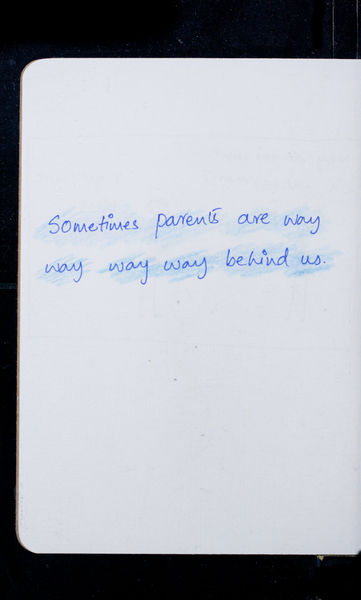 Sometimes parents are way
way way way behind us.